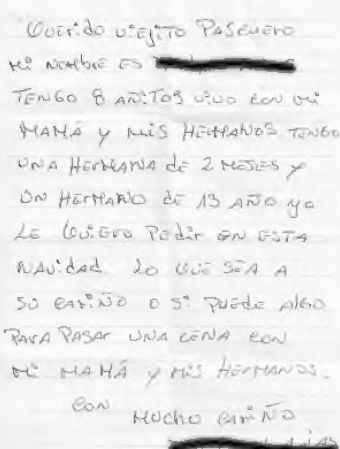 Querido viejito Pascuero
mi nombre es
TENGO 8 AÑITOS vivo con mi
MAMÁ y mis HERMANOS TENGO
UNA HERMANA de 2 MESES y
UN HERMANO de 13 AÑO yo
LE QUIERO Pedir EN ESTA
NAVIDAD lo QUE SEA A
SU CARIÑO O SI PUEDE Algo
PARA PASAR UNA CENA CON
MI MAMÁ y MIS HERMANOS.
CON MUCHO CARIÑO